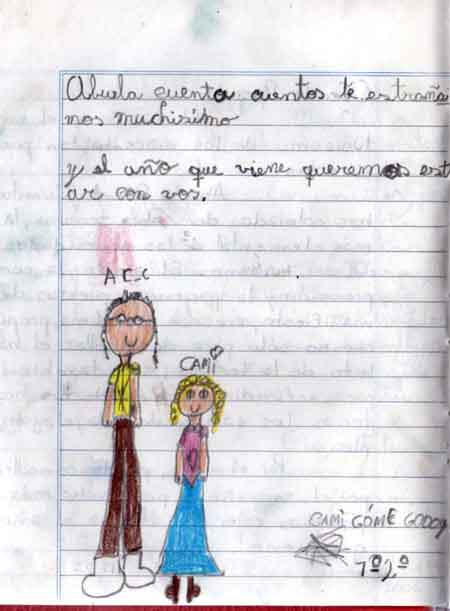 Abuela cuenta cuentos té estraña
mos muchisimo
y el año que viene queremos est
ar con vos.
A C_C
CAMI
CAMI GÓME GODOY
1º 2º